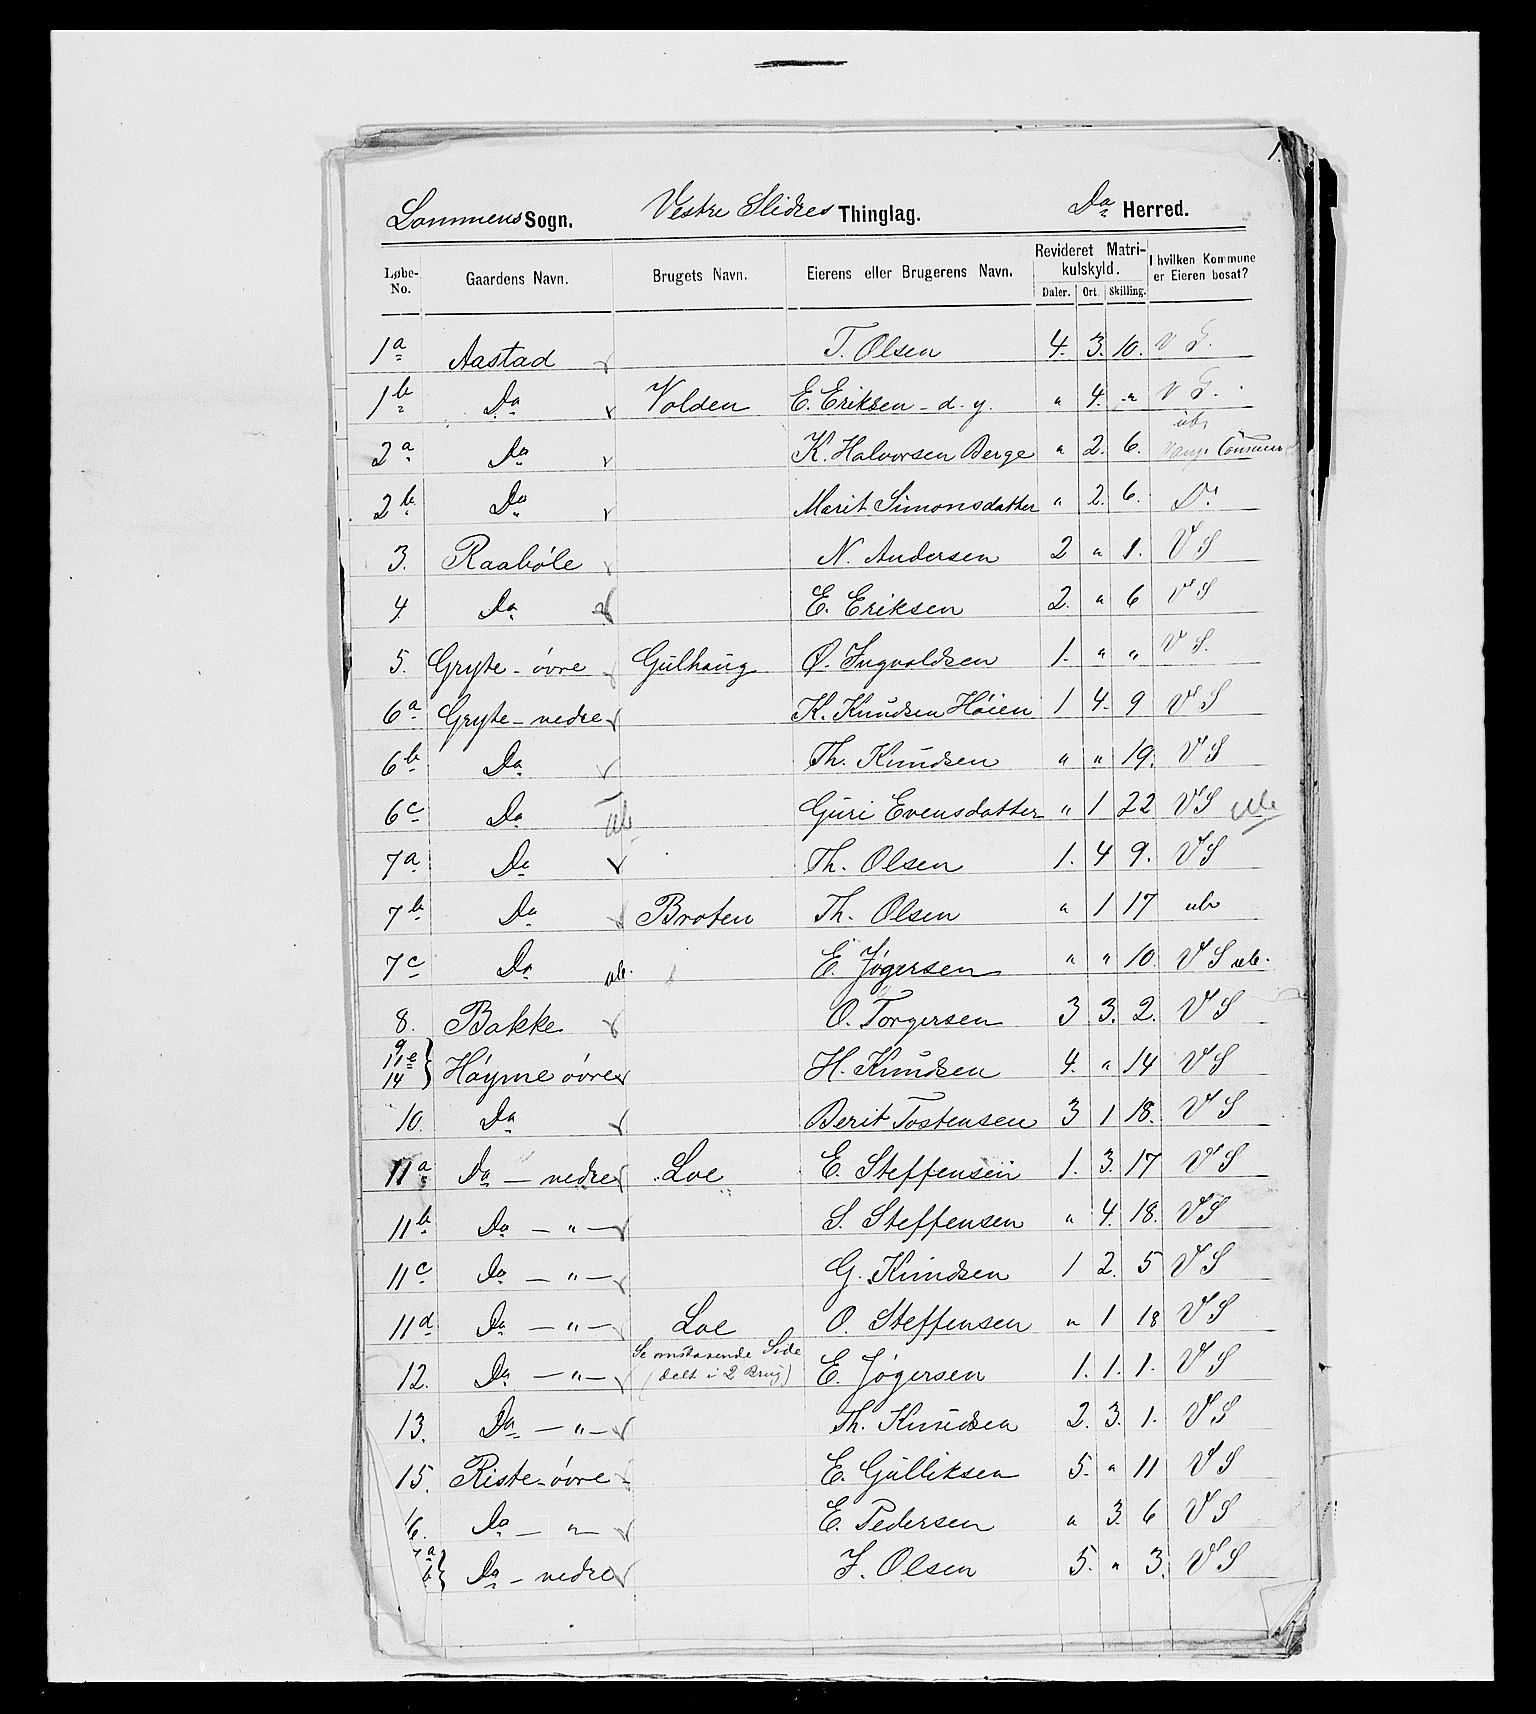 1.
Lommens Sogn. Vestre Slidres Thinglag. Da Herred.
Løbe-No. Gaardens Navn. Brugets Navn. Eierens eller Brugerens Navn. Revideret Matrikulskyld. Daler. Ort. Skilling. I hvilken Kommune er Eieren bosat?
1a Aastad T. Olsen 4. 3. 10. V S.
1b Da Volden E. Eriksen - d. y. " 4. " V S.
2a Da K. Halvorsen Berge " 2. 6. ub. Vangs
2b Da Marit Simonsdatter " 2. 6. Do
3. Raabøle N. Andersen 2 " 1. V S
4 Da E. Eriksen 2. " 6 V S
5. Gryte - øvre Gulhaug O. Ingvaldsen 1. " " V S.
6a Gryte - nedre K. Knudsen Høien 1 4. 9 V S
6b Da Th. Knudsen " " 19. V S
6c Da ub Guri Evensdatter " 1 22 V S ub
7a Da Th. Olsen 1. 4 9. V S
7b Da Broten Th. Olsen " 1 17 ub
7c Da ub. E. Jøgersen " " 10. V S ub.
8. Bakke O. Torgersen 3 3. 2. V S
9 11e 14 } Høyme øvre H. Knudsen 4. " 14 V S
10. Da Berit Tostensen 3 1 18. V S
11a Da - nedre Loe E. Steffensen 1. 3. 17 V S
11b Da - " - S. Steffensen " 4. 18. V S
11c Da - " - G. Knudsen 1 2. 5 V S
11d Da - " - Loe O. Steffensen " 1 18 V S
12. Da - " - Se omstaaende Side (delt i 2 Brug) E. Jøgersen 1. 1. 1. V S
13. Da - " - Th. Knudsen 2. 3. 1. V S
15. Riste - øvre E. Gulliksen 5. " 11 V S
16. Da - " - E. Pedersen " 3. 6 V S
7a b } Da - nedre J. Olsen 5. " 3. V S